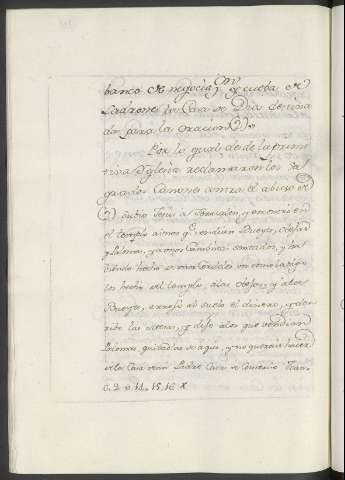 banco de negocia(on) y cueba de
Ladrones la Casa de Dios destina
da para la oracion(2).
Por lo qual desde la primi
tiva Iglesia reclamaron los Sa
grados Canones contra el abuso de
(2) Subio Jesus a Jerusalen, y encontró en
el templo a unos q.e vendian Bueyes, obejas
y Palomas, y a otros Cambistas sentados, y ha
biendo hecho de unos Cordeles un como latigo
los hechó del templo, a las obejas, y a los
Bueyes, arrojó al suelo el dinero, y
las mesas, y dijo a los que vendian
Palomas, quitadlas de aqui, y no querais hacer
de la Casa de mi Padre Casa de Comercio Joan.
C. 2 v. 14. 15. 16 X